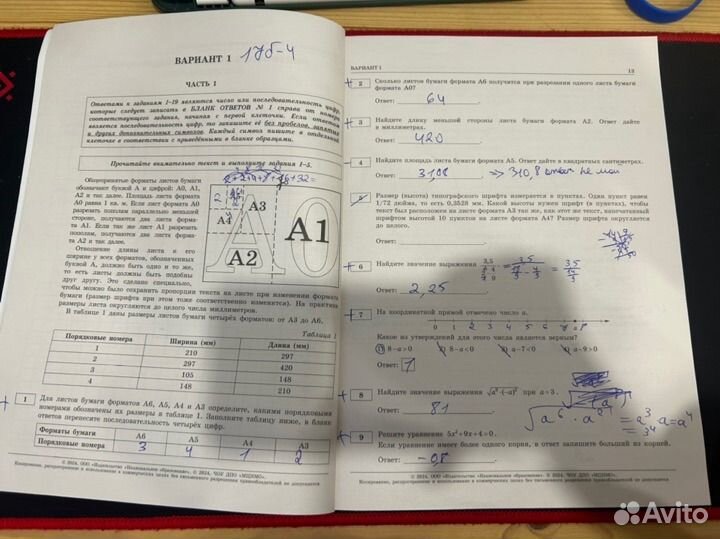 ВАРИАНТ 1 17б-4
ЧАСТЬ 1
Ответами к заданиям 1–19 являются число или последовательность цифр,
которые следует записать в БЛАНК ОТВЕТОВ № 1 справа от номера
соответствующего задания, начиная с первой клеточки. Если ответом
является последовательность цифр, то запишите её без пробелов, запятых
и других дополнительных символов. Каждый символ пишите в отдельной
клеточке в соответствии с приведёнными в бланке образцами.
Прочитайте внимательно текст и выполните задания 1–5.
Общепринятые форматы листов бумаги
обозначают буквой А и цифрой: А0, А1,
А2 и так далее. Площадь листа формата
А0 равна 1 кв. м. Если лист формата А0
разрезать пополам параллельно меньшей
стороне, получаются два листа форма-
та А1. Если так же лист А1 разрезать
пополам, получаются два листа форма-
та А2 и так далее.
Отношение длины листа к его
ширине у всех форматов, обозначенных
буквой А, должно быть одно и то же,
то есть листы должны быть подобны
друг другу. Это сделано специально,
чтобы можно было сохранить пропорции текста на листе при изменении формата
бумаги (размер шрифта при этом тоже соответственно изменится). На практике
размеры листа округляются до целого числа миллиметров.
В таблице 1 даны размеры листов бумаги четырёх форматов: от А3 до А6.
A3
A4
A1
A2
A0
Таблица 1
Порядковые номера Ширина (мм) Длина (мм)
1 210 297
2 297 420
3 105 148
4 148 210
+ 1 Для листов бумаги форматов А6, А5, А4 и А3 определите, какими порядковыми
номерами обозначены их размеры в таблице 1. Заполните таблицу ниже, в бланк
ответов перенесите последовательность четырёх цифр.
Форматы бумаги А6 А5 А4 А3
Порядковые номера 3 4 1 2
© 2024, ООО «Издательство «Национальное образование», © 2024, ЧОУ ДПО «МЦНМО»
Копирование, распространение и использование в коммерческих целях без письменного разрешения правообладателей не допускается
ВАРИАНТ 1
13
+ 2 Сколько листов бумаги формата А6 получится при разрезании одного листа бумаги
формата А0?
Ответ: 64.
+ 3 Найдите длину меньшей стороны листа бумаги формата А2. Ответ дайте
в миллиметрах.
Ответ: 420
- 4 Найдите площадь листа бумаги формата А5. Ответ дайте в квадратных сантиметрах.
Ответ: 3108 => 310,8 ответ не мой
5 Размер (высота) типографского шрифта измеряется в пунктах. Один пункт равен
1/72 дюйма, то есть 0,3528 мм. Какой высоты нужен шрифт (в пунктах), чтобы
текст был расположен на листе формата А3 так же, как этот же текст, напечатанный
шрифтом высотой 10 пунктов на листе формата А4? Размер шрифта округляется
до целого.
Ответ:
+ 6 Найдите значение выражения
Ответ: 2,25
+ 7 На координатной прямой отмечено число a.
0 1 2 3 4 5 6 7 a
Какое из утверждений для этого числа является верным?
1) 8−a>0 2) 8−a<0 3) a−7<0 4) a−9>0
Ответ: 1
+ 8 Найдите значение выражения √a⁶·(−a)² при a=3.
Ответ: 81
+ 9 Решите уравнение 5x²+9x+4=0.
Если уравнение имеет более одного корня, в ответ запишите больший из корней.
Ответ: −0,8
© 2024, ООО «Издательство «Национальное образование», © 2024, ЧОУ ДПО «МЦНМО»
Копирование, распространение и использование в коммерческих целях без письменного разрешения правообладателей не допускается
Avito